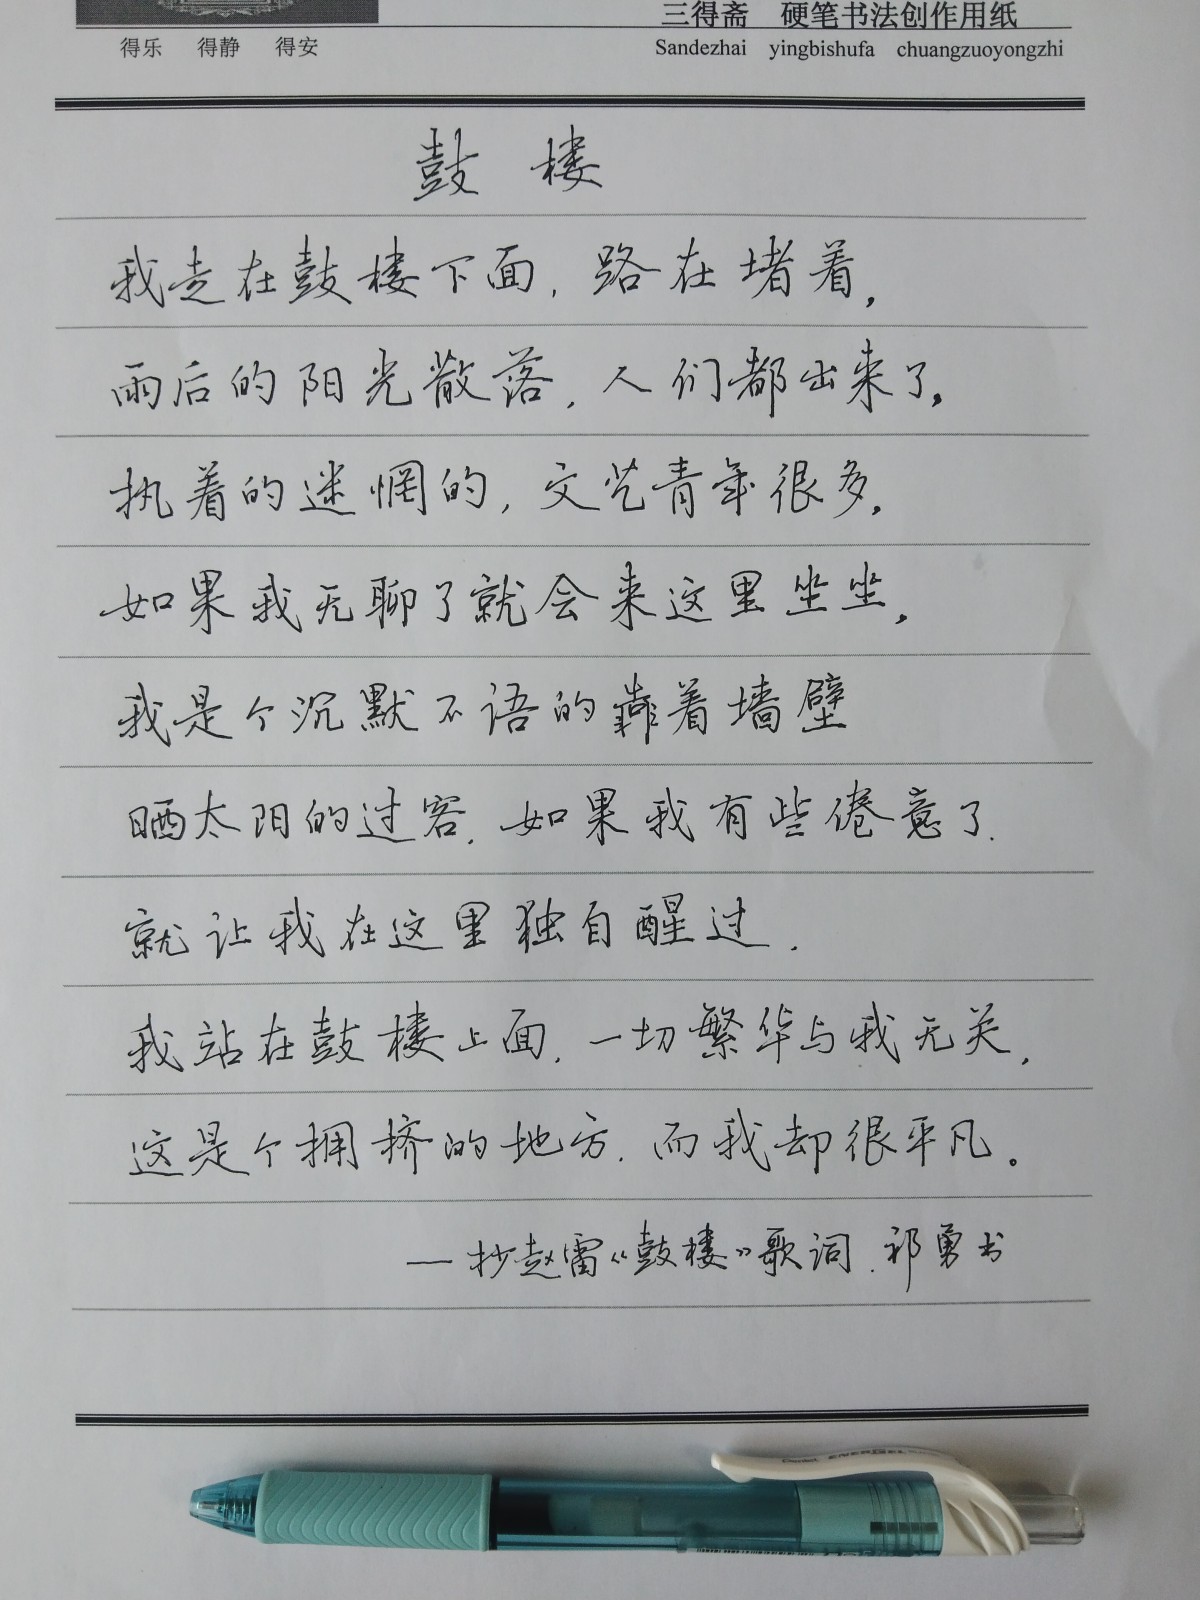 三得斋 硬笔书法创作用纸
得乐 得静 得安
Sandezhai yingbishufa chuangzuoyongzhi
鼓楼
我走在鼓楼下面，路在堵着，
雨后的阳光散落，人们都出来了。
执着的迷惘的，文艺青年很多。
如果我无聊了就会来这里坐坐，
我是个沉默不语的靠着墙壁
晒太阳的过客，如果我有些倦意了，
就让我在这里独自醒过，
我站在鼓楼上面，一切繁华与我无关，
这是个拥挤的地方，而我却很平凡。
—抄赵雷《鼓楼》歌词，祁勇书
Pentel ENERGEL